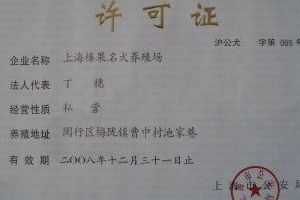 许可证
沪公犬 字第 065号
企业名称 上海榛果名犬养殖场
法人代表 丁 穗
经营性质 私 营
养殖地址 闵行区梅陇镇曹中村池家巷
有效期 二〇〇八年十二月三十一日止
上海市公安局